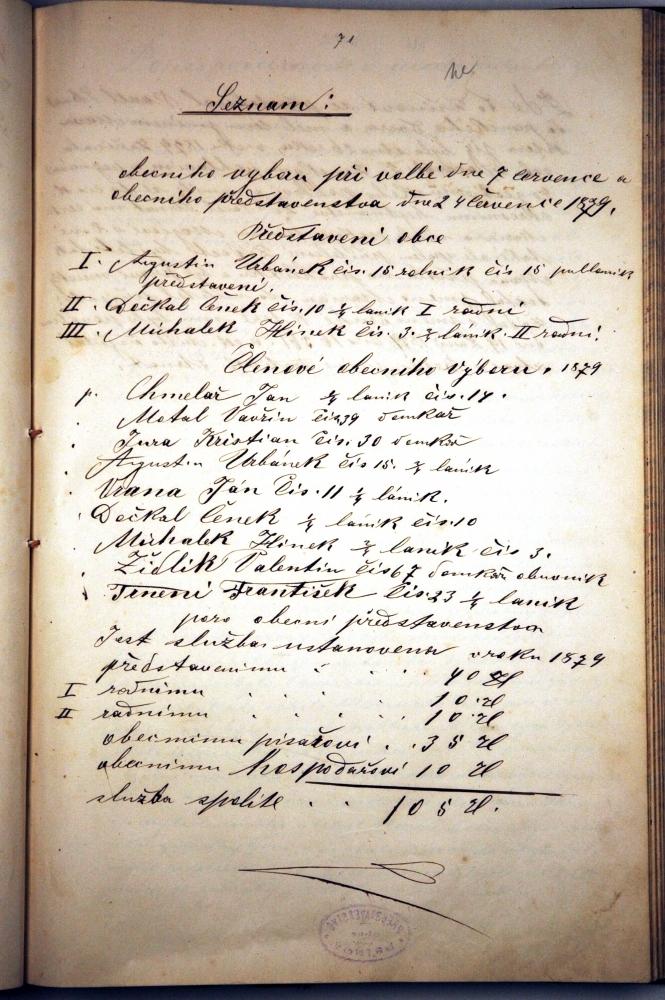 71
Seznam:
obecního výboru při volbě dne 7 července a
obecního představenstva dne 24 července 1879.
Představení obce
I. Agustin Urbánek čís. 15 rolník čís 15 pullanik
představení.
II. Dočkal Čeněk čís. 10 láník I radní
III. Michalek Hinek čís. 3. láník. II radní.
Členové obecního výboru. 1879
p. Chmelař Jan lanik čís. 14.
Motal Vavřin čís 39 domkař
Jura Kristian čís. 30 domkař
Agustin Urbánek čís 15. láník
Vrana Ján Čís. 11 láník.
Dočkal Čeněk láník čís. 10
Michalek Hinek lanik čís 3.
Židlik Valentin čís 67 domkář obuvnik
Trnení František čís. 23 lanik
pero obecní představenstvo
Jest služba ustanovena v roku 1879
představenimu 40 Zl
I radnímu 10 Zl
II radnímu 10 Zl
obecnimu pisařovi 35 Zl
obecnimu hospodařovi 10 Zl
služba spolite 105 Zl.